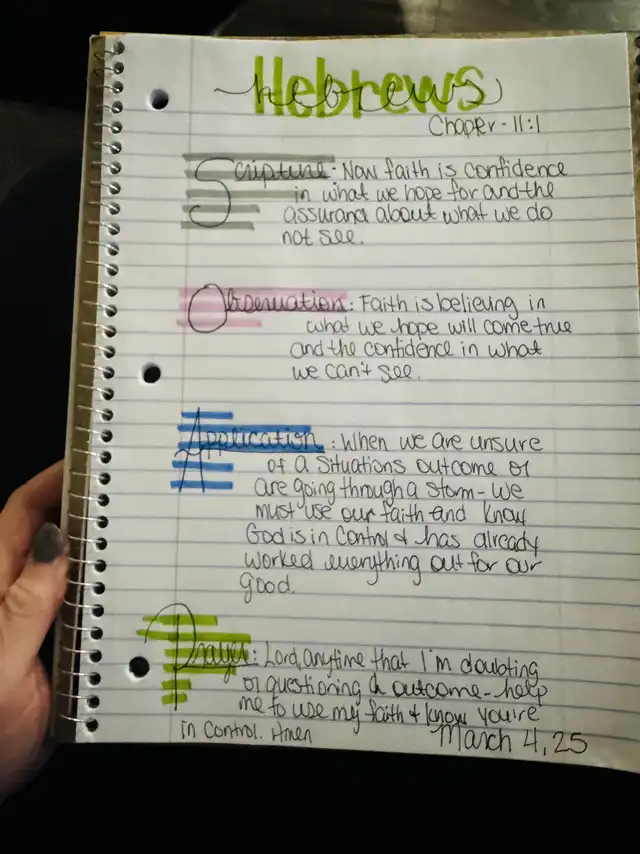 Hebrews
hebrews
Chaper-11:1
Scripture: Now faith is confidence
in what we hope for and the
assurand about what we do
not see.
Observation: Faith is believing in
what we hope will come true
and the confidence in what
we can't see.
Application: When we are unsure
of a situations outcome or
are going through a storm - we
must use our faith and know
God is in control & has already
worked everything out for our
good.
Prayer: Lord, anytime that I'm doubting
or questioning a outcome - help
me to use my faith & know you're
in control. Amen
March 4, 25